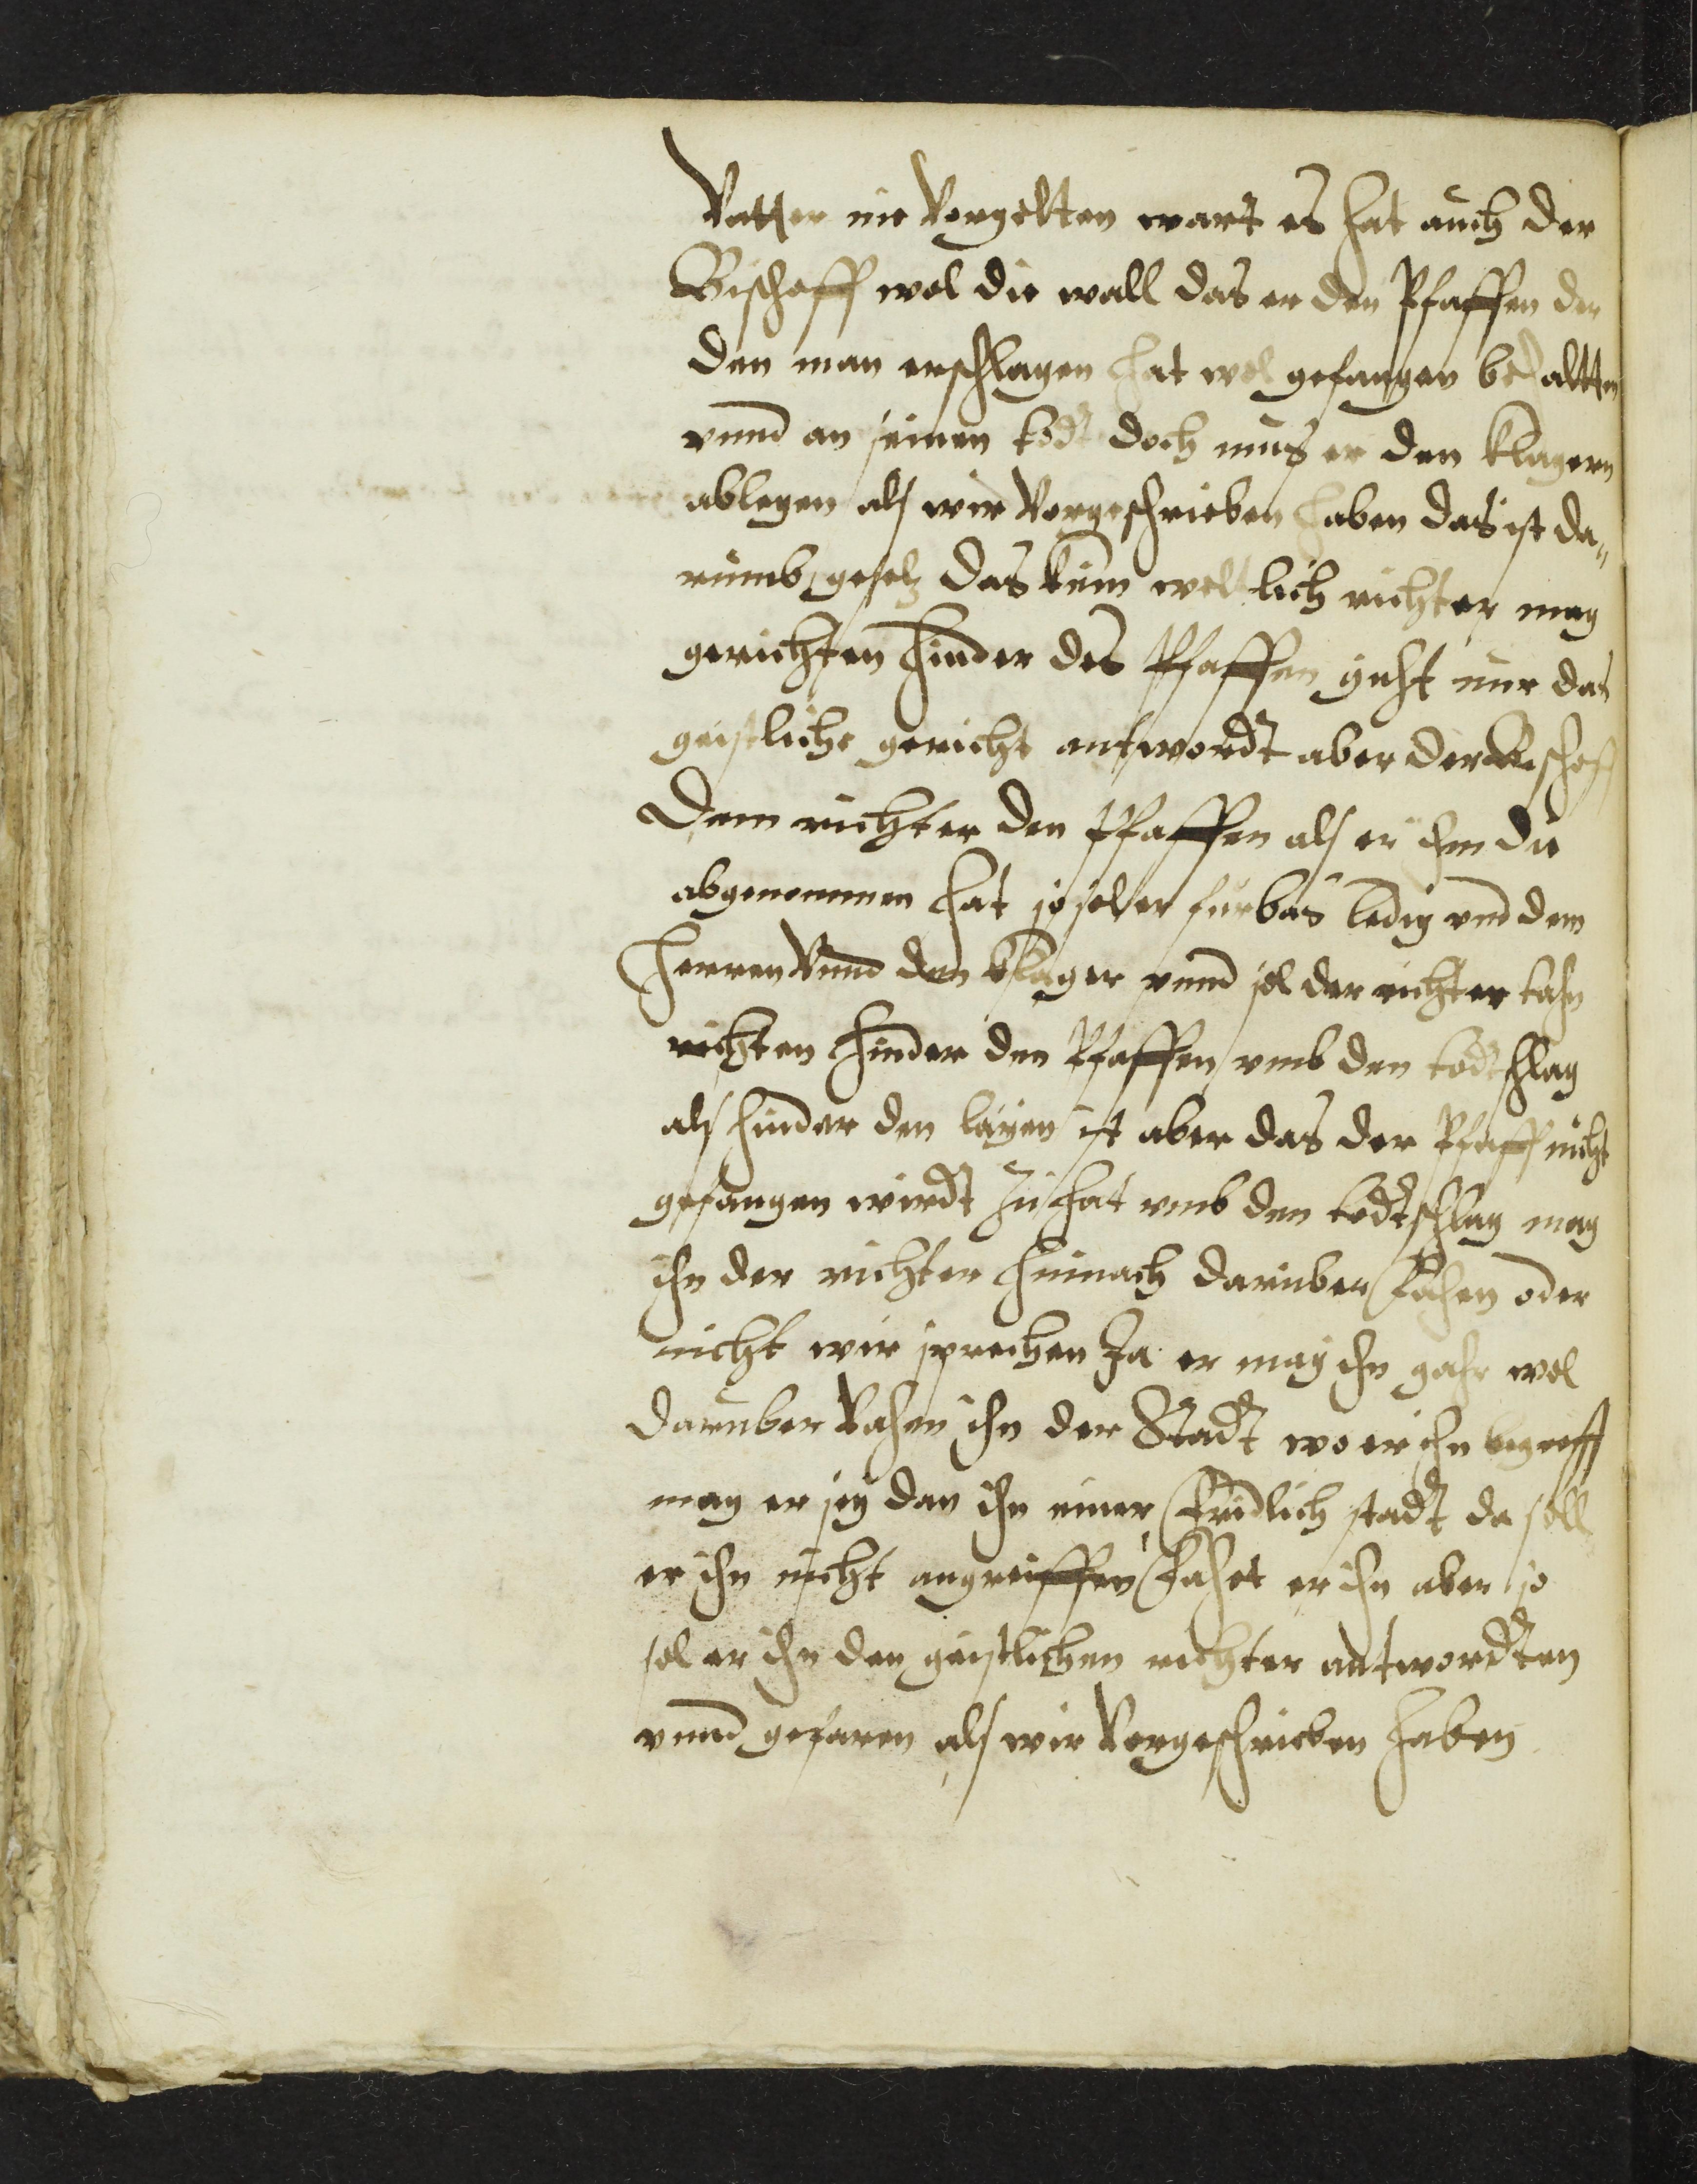 Vatter nie Vorgelten wart es hat auch der
Bischoff wol die wall das er den Pfaffen der
den man erschlagen hat wol gefangen behaltten
vnnd an seinen todt doch mus er den klagern
ablegen als wir Vorgeschrieben haben das ist da„
rumb gesetz das kein weltlich richter mag
gerichten hinder des Pfaffen guht nur das
geistliche gericht antwordt aber der Bischoff
dem richter den Pfaffen als er ihm die
abgenommen hat so sol er furbas ledig vnd dem
herren Vnnd den klager vnnd sol der richter
richten hinder den Pfaffen vmb den todtschlag
als hinder den layen ist aber das der Pfaff nicht
gefangen wirdt hat vmb den todtschlag mag
ihn der richter hinnach daruber fahen oder
nicht wir sprechen Ja er mag ihn gahr wol
daruber Vahen ihn der Stadt wo er ihn begreiff
mag er sey dan ihn einer fridlich stadt da soll
er ihn nicht angreiffen fahet er ihn aber so
sol er ihn den geistlichen richter antwordten
vnnd gefaren als wir Vorgeschrieben haben